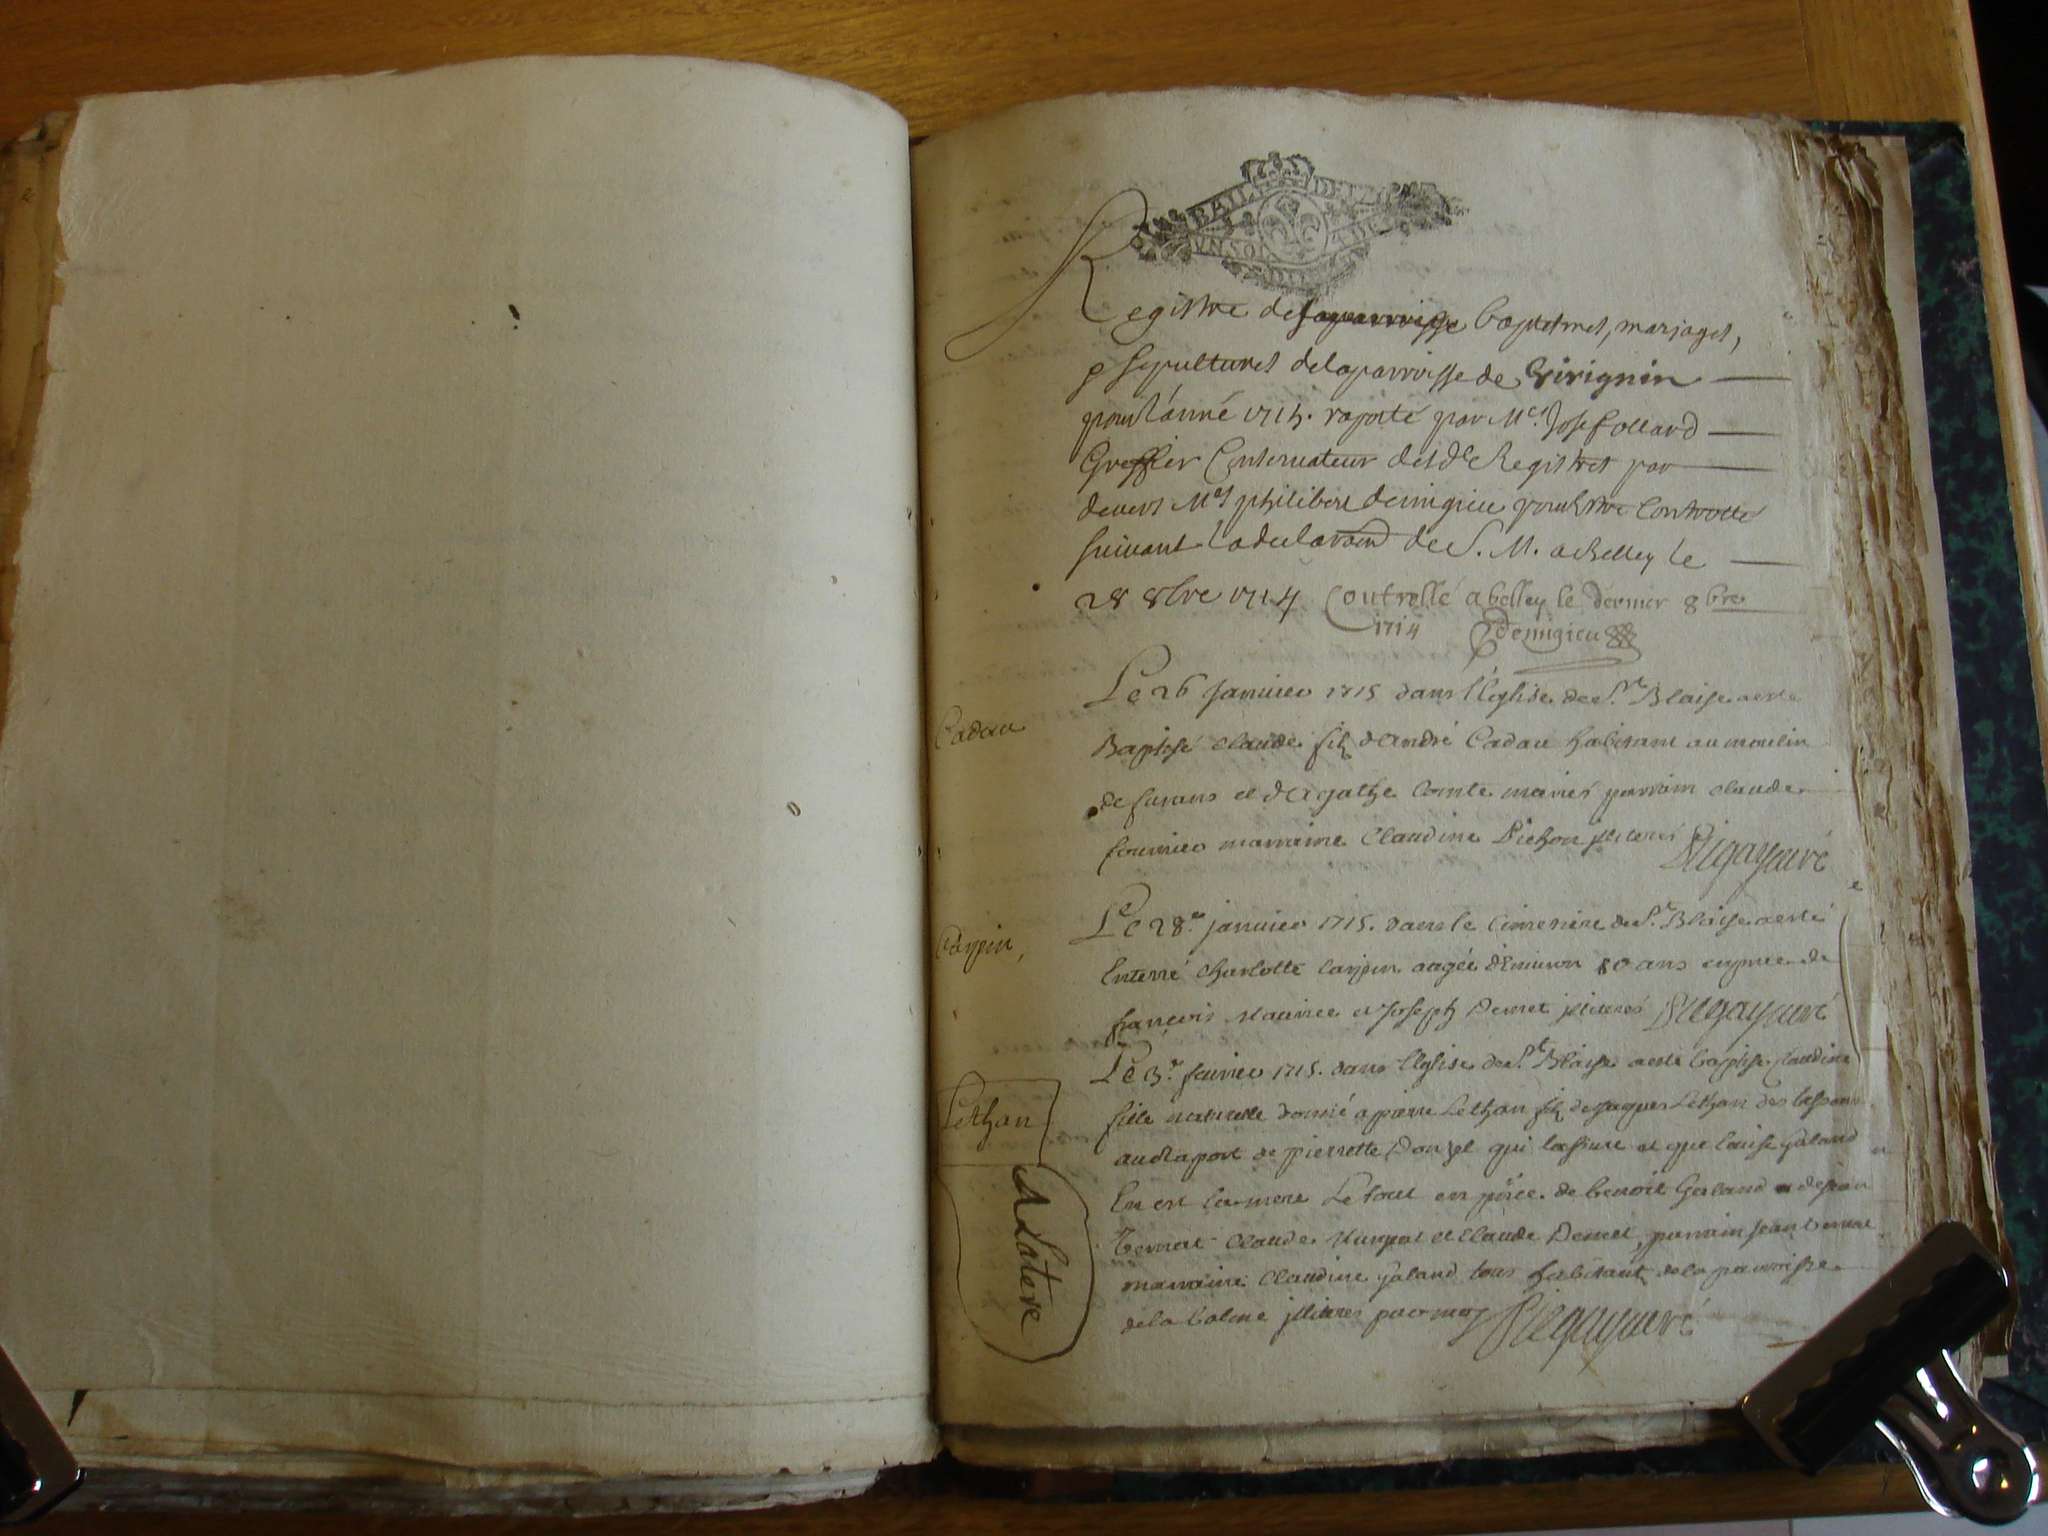 UN SOL
Registre des baptesmes, mariages,
& sepultures de la parroisse de Virignin
pour l'année 1715. raporté par Me. Josef ollard
Greffier Conservateur desd. Registres par
devers Me philibert demigieu pour estre Controllé
suivant la declaraon de S. M. a Belley le
28 8bre 1714 Controllé a belley le dernier 8bre
1714 Demigieu
Cadau
Le 26 janvier 1715 dans l'Eglise de St. Blaise a esté
Baptisé claude fils d'André Cadau habitant au moulin
de furans et d'Agathe Comte mariés parrain claude
fournier marraine Claudine Pichon illiterés
Carpin,
Le 28e janvier 1715. dans le cimetiere de St. Blaise a esté
Enterré charlotte carpin aagée d'Environ 80 ans en pnce de
françois Maurice et Joseph Demet illiterés
Lethan
Le 3e fevrier 1715. dans l'Eglise de St. Blaise a esté baptisé claudine
fille naturelle donné a pierre Lethan fils de jaques Lethan des
au raport de pierrette Donzel qui lassure et que louise galand
En est la mere Le tout en pnce de benoit Galand
A Latere
Claude et Claude Demet, parrain jean
marraine Claudine galand tous habitants de la parroisse
de la balme illiterés par moy